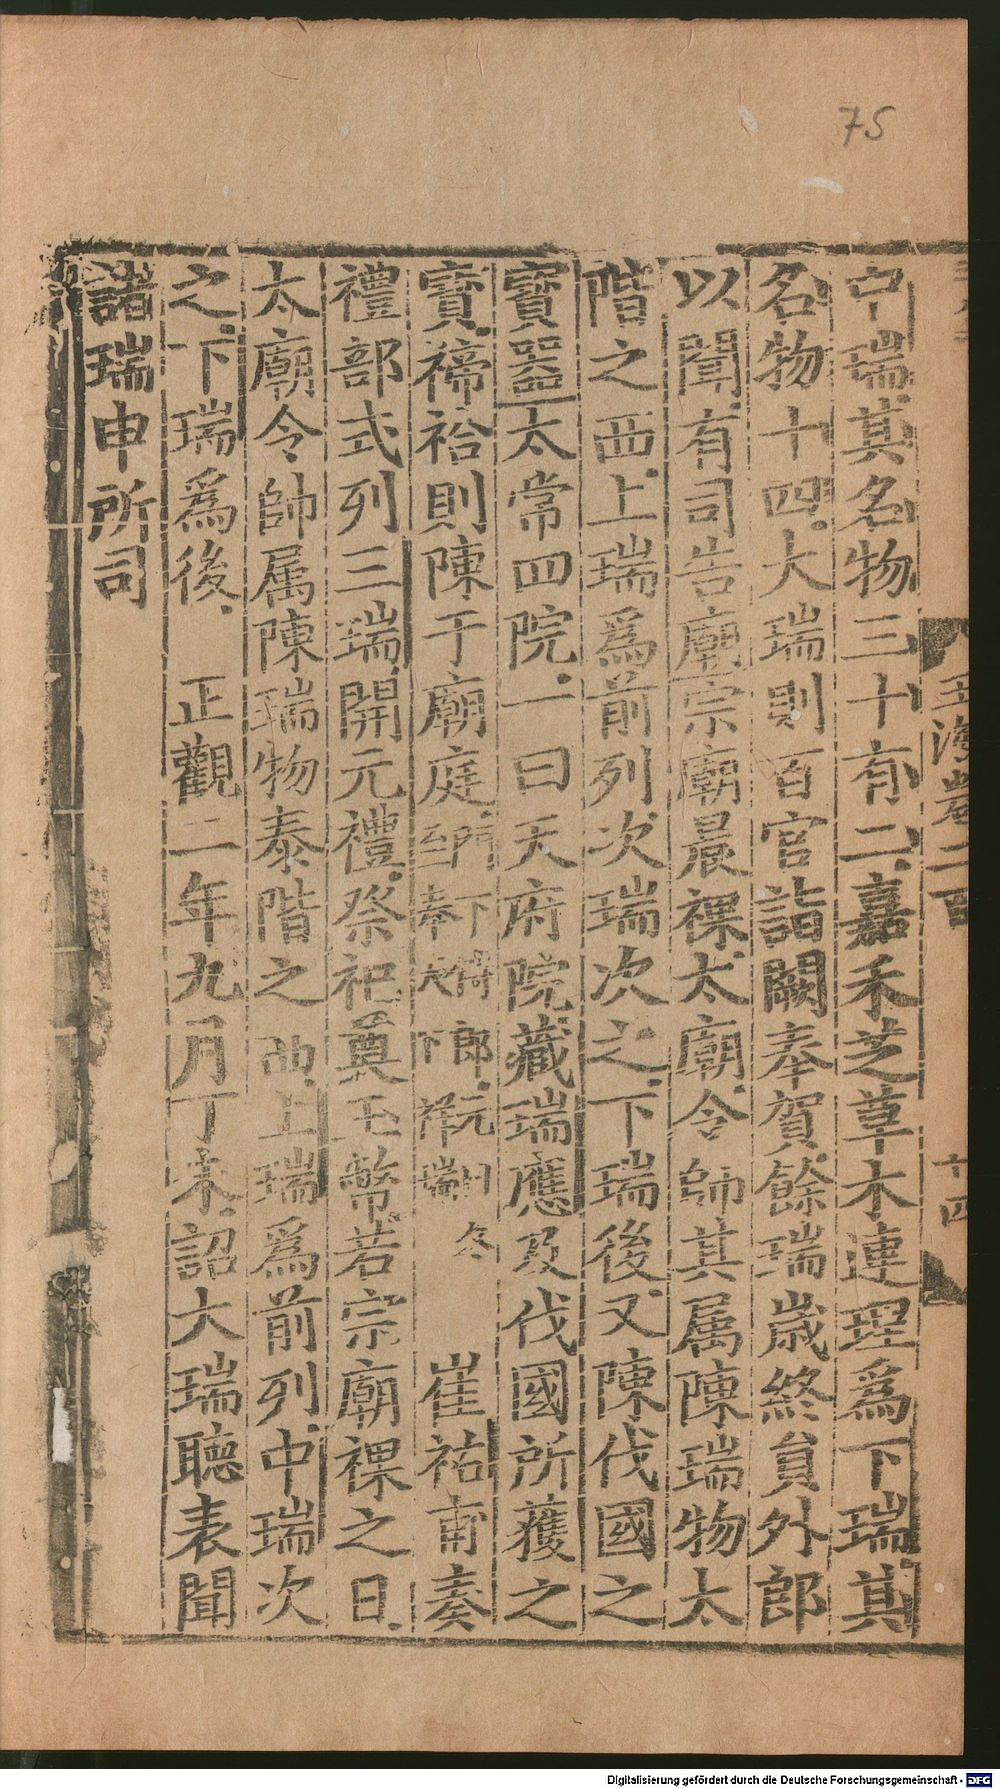 75
玉海卷二百
廿四
中瑞其名物三十有二嘉禾芝草木連理爲下瑞其
名物十四大瑞則百官詣闕奉賀餘瑞歲終員外郎
以聞有司告廟宗廟晨祼太廟令帥其属陳瑞物太
階之西上瑞爲前列次瑞次之下瑞後又陳伐國之
寶器太常四院一曰天府院藏瑞應及伐國所獲之
寶禘祫則陳于廟庭
門下侍郎元
奉
下祥瑞
崔祐甫奏
禮部式列三瑞開元禮祭祀奠玉幣若宗廟祼之日
太廟令帥属陳瑞物泰階之西上瑞爲前列中瑞次
之下瑞爲後 正觀二年九月丁未詔大瑞聽表聞
諸瑞申所司
Digitalisierung gefördert durch die Deutsche Forschungsgemeinschaft - DFG